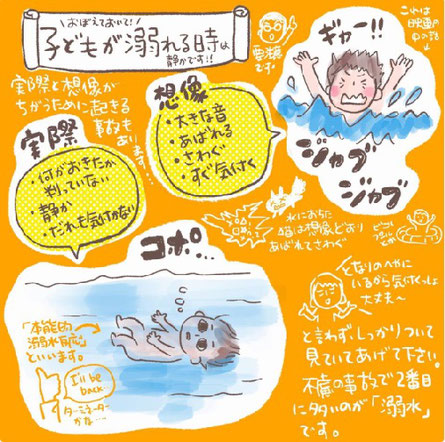 おぼえておいて!
子どもが溺れる時は
静かです!!
要注意
です
これは
映画の
中の話
ギャー!!
ジャブ
ジャブ
実際と想像が
ちがうために起きる
事故も
あります…
想像
・大きな音
・あばれる
・さわぐ
・すぐ気付く
実際
・何がおきたか
判っていない
・静か
・だれも気付かない
水におちた
猫は想像どおり
あばれてさわぐ
コポ…
「本能的
溺水反応」
といいます。
I'll be
back
ターミネーター
かな…
となりのへやに
いるから気付くっしょ
大丈夫〜
と言わず、しっかりついて
見ていてあげて下さい。
不慮の事故で2番目
に多いのが「溺水」
です。